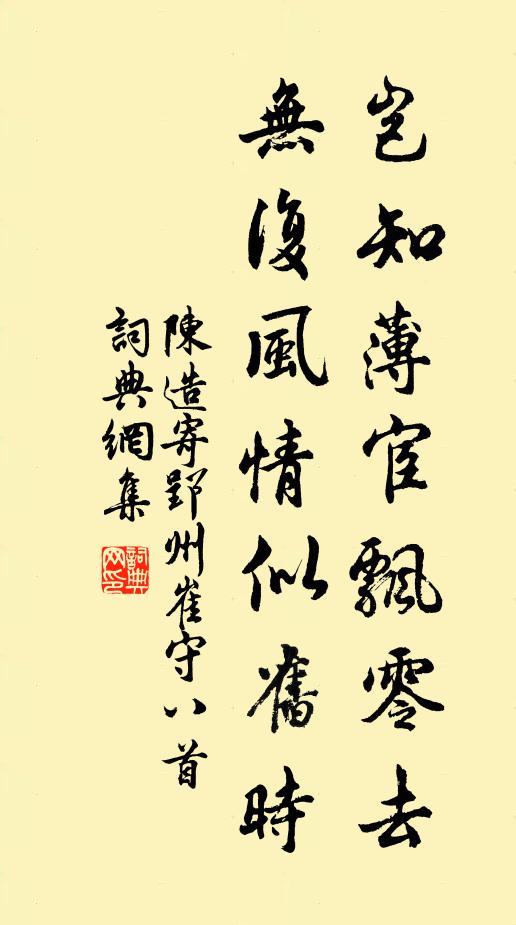 豈知薄宦飄零去
無復風情似舊時
陳造寄郢州崔守八首
詞典網集
詞典網印